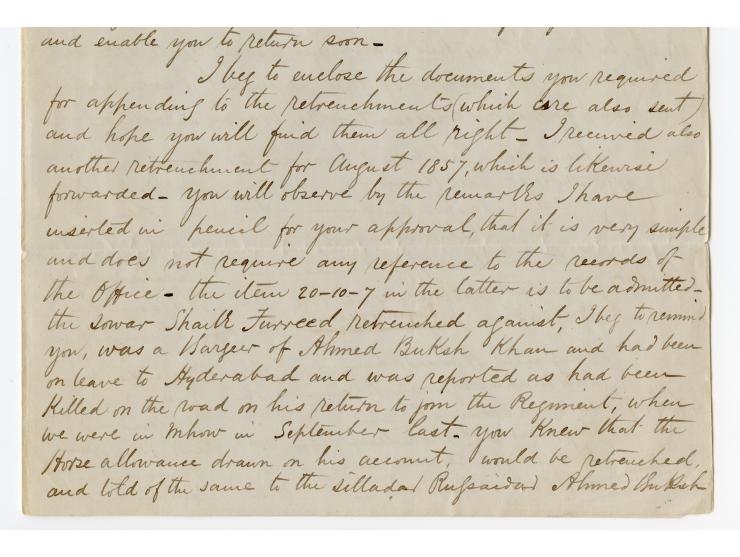 and enable you to return soon -
I beg to enclose the documents you required
for appending to the retrenchments (which are also sent)
and hope you will find them all right - I received also
another retrenchment for August 1857, which is likewise
forwarded - you will observe by the remarks I have
inserted in pencil for your approval, that it is very simple
and does not require any reference to the records of
the Office - the item 20-10-7 in the latter is to be admitted -
the sowar Shaik Furreed retrenched against, I beg to remind
you, was a Bargeer of Ahmed Buksh Khan and had been
on leave to Hyderabad and was reported as had been
Killed on the road on his return to join the Regiment, when
we were in Mhow in September last - you Knew that the
Horse allowance drawn on his account, would be retrenched,
and told of the same to the silladar Ahmed Buksh